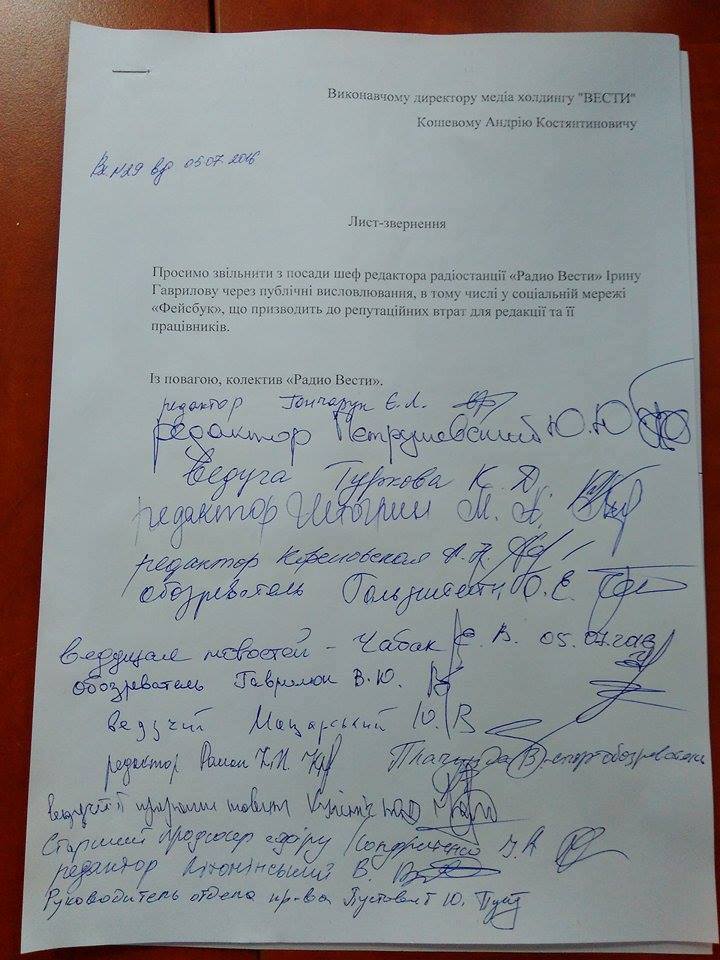 Виконавчому директору медіа холдингу "ВЕСТИ"
Кошевому Андрію Костянтиновичу
Вх №29 від 05.07.2016
Лист-звернення
Просимо звільнити з посади шеф редактора радіостанції «Радио Вести» Ірину
Гаврилову через публічні висловлювання, в тому числі у соціальній мережі
«Фейсбук», що призводить до репутаційних втрат для редакції та її
працівників.
Із повагою, колектив «Радио Вести».
редактор Гончарук Є.Л.
редактор Петрушевский Ю.Ю
Ведуча Туркова К. Д.
редактор М. А.
редактор А.
обозреватель Гольдштейн О. Е.
Ведущая новостей - Чабак Е. В. 05.07.2016
обозреватель Гаврилюк В.Ю.
ведучий Мацарський Ю. В
редактор
Плачинда В. спортобозреватель
ведучий програми
Старший продюсер эфіру Кондратенко І. А
редактор В.
Руководитель отдела Пустовит Ю.